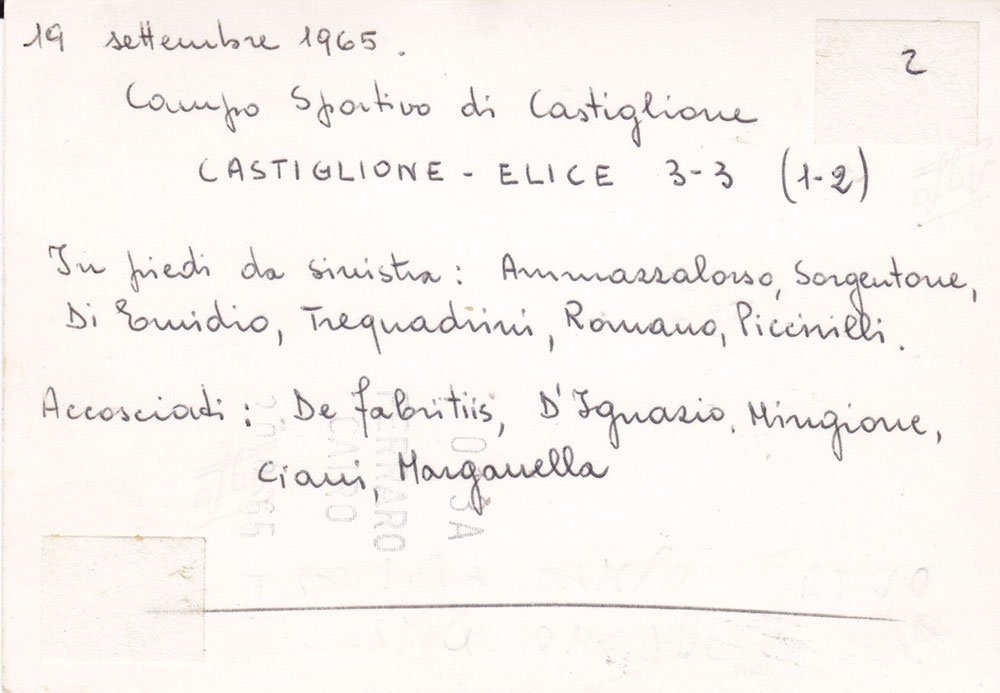 19 settembre 1965.
2
Campo Sportivo di Castiglione
CASTIGLIONE - ELICE 3-3 (1-2)
In piedi da sinistra: Ammazzalorso, Sorgentone,
Di Emidio, Trequadrini, Romano, Piccinilli.
Accosciati: De Fabritiis, D'Ignazio, Mingione,
Ciani, Marganella